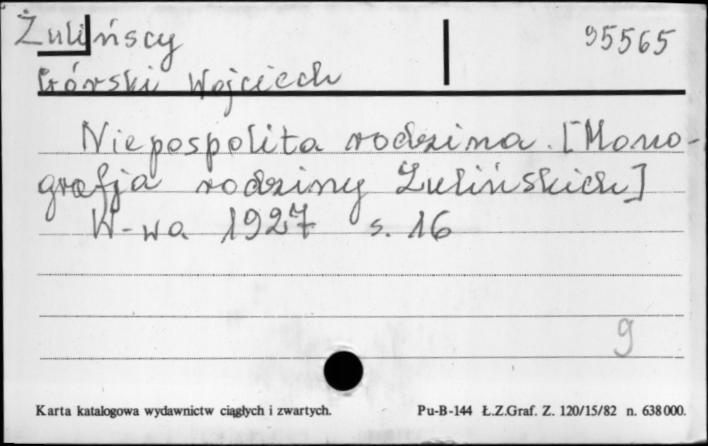 Żulińscy 95565
Górski Wojciech
Niepospolita rodzina. [Mono-
grafja rodziny Żulińskich]
W-wa 1927 s. 16
9
Karta katalogowa wydawnictw ciągłych i zwartych. Pu-B-144 Ł.Z.Graf. Z. 120/15/82 n. 638000.